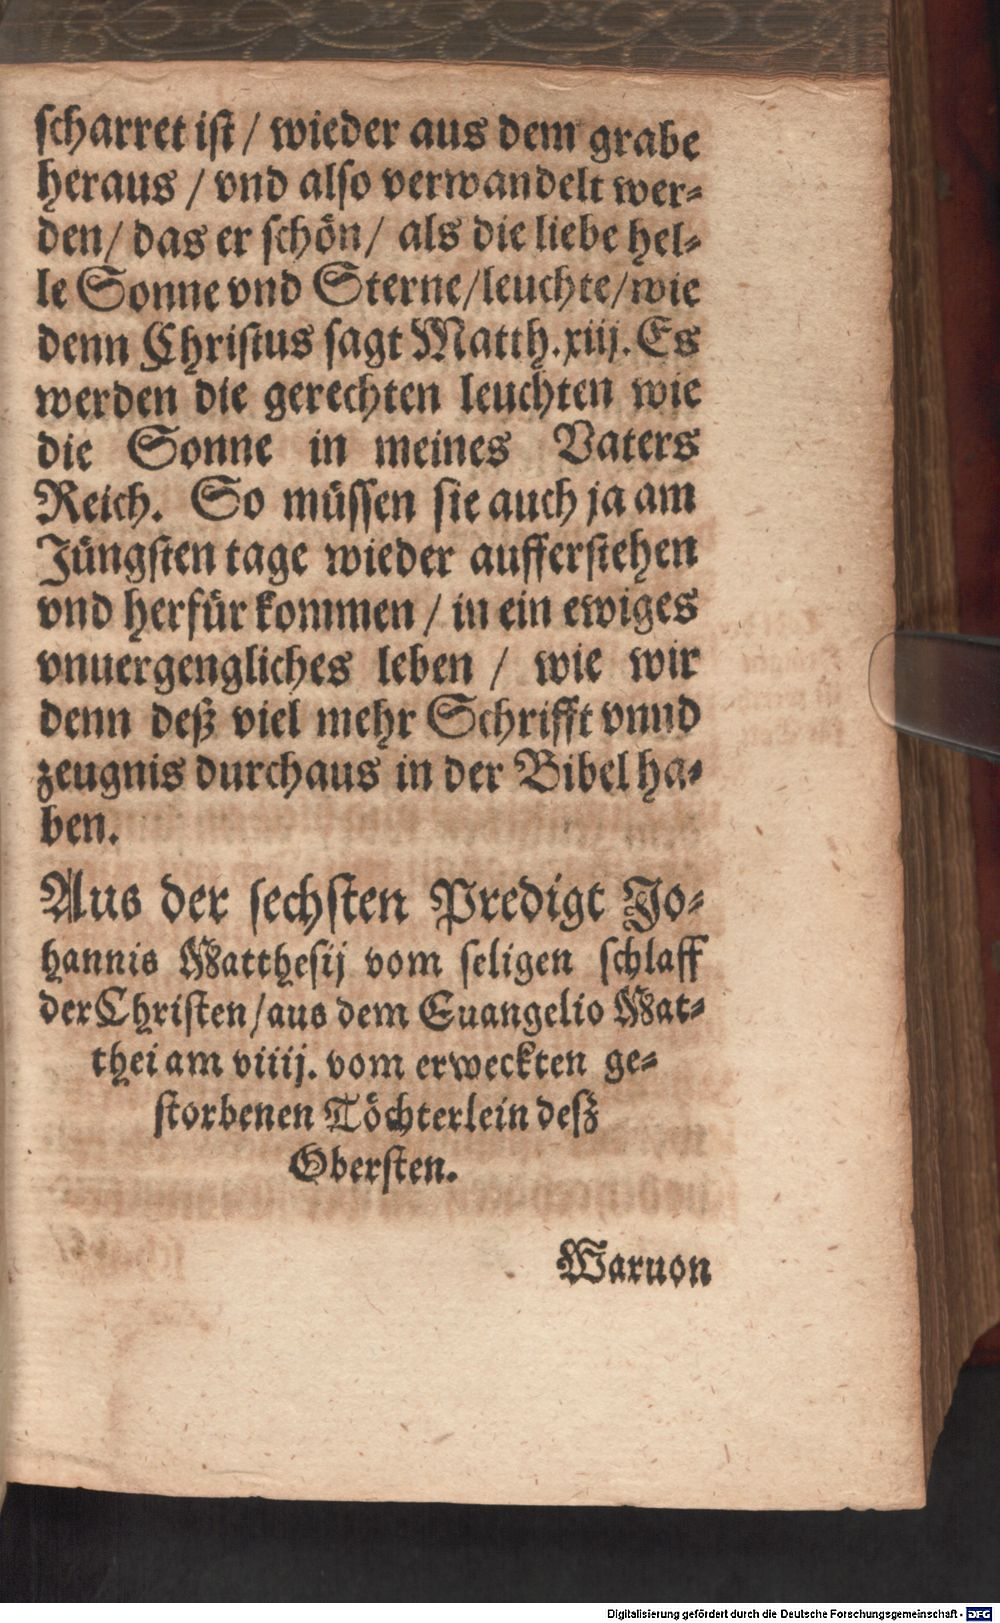 scharret ist / wieder aus dem grabe
heraus / vnd also verwandelt wer⸗
den / das er schön / als die liebe hel⸗
le Sonne vnd Sterne / leuchte / wie
denn Christus sagt Matth. xiij. Es
werden die gerechten leuchten wie
die Sonne in meines Vaters
Reich. So müssen sie auch ja am
Jüngsten tage wieder aufferstehen
vnd herfür kommen / in ein ewiges
vnuergengliches leben / wie wir
denn deß viel mehr Schrifft vnnd
zeugnis durchaus in der Bibel ha⸗
ben.
Aus der sechsten Predigt Jo⸗
hannis Matthesij vom seligen schlaff
der Christen / aus dem Euangelio Mat⸗
thei am viiij. vom erweckten ge⸗
storbenen Töchterlein deß
Obersten.
Waruon
Digitalisierung gefördert durch die Deutsche Forschungsgemeinschaft - DFG